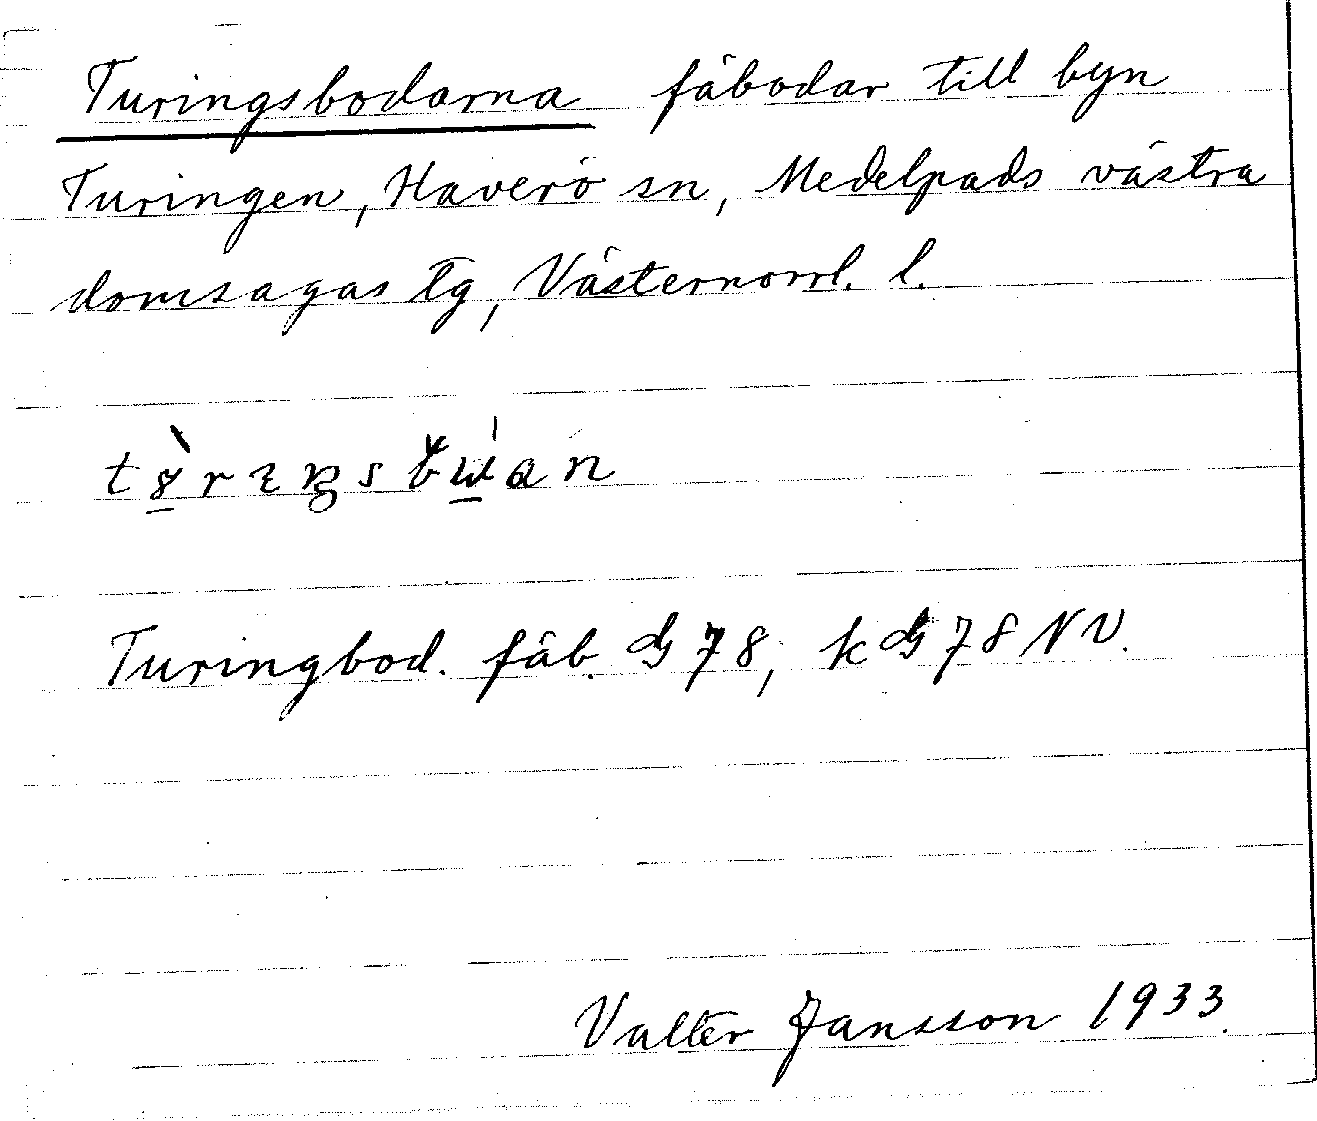 Turingsbodarna fäbodar till byn
Turingen, Haverö sn, Medelpads västra
domsagas tg, Västernorrl. l.
Turingbod. fäb. G 78, k G 78 NV.
Valter Jansson 1933.